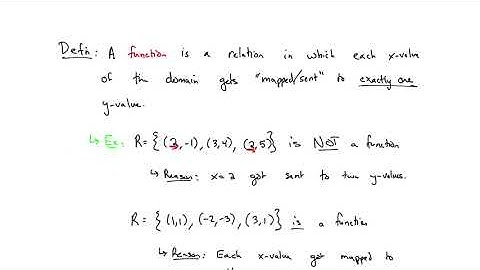 Defn: A function is a relation in which each x-value
of the domain gets "mapped/sent" to exactly one
y-value.
↳ Ex: R = {(2,-1), (3,4), (2,5)} is NOT a function
↳ Reason: x=2 got sent to two y-values.
R = {(1,1), (-2,-3), (3,1)} is a function
↳ Reason: Each x-value got mapped to